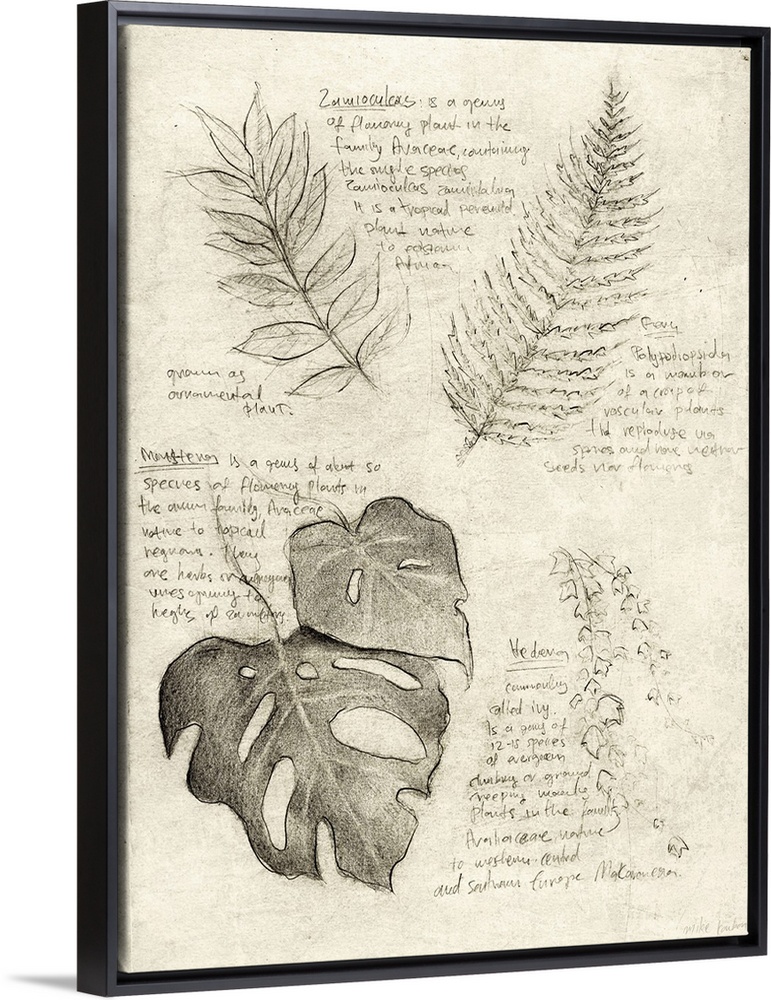 Zamioculcas: is a genus
of flowering plant in the
family Araceae, containing
the single species
Zamioculcas
It is a tropical perennial
plant native
to eastern
Africa
grown as
ornamental
plant.
is a member
of a group of
vascular plants
reproduce via
spores and have neither
seeds nor flowers
is a genus of about 50
species of flowering plants in
the arum family, Araceae
native to tropical
regions. They
are herbs or evergreen
vines growing to
heights of
Hedera
commonly
called ivy.
Is a genus of
12-15 species
of evergreen
climbing or ground
creeping
plants in the family
Araliaceae, native
to western, central
and southern Europe
mike